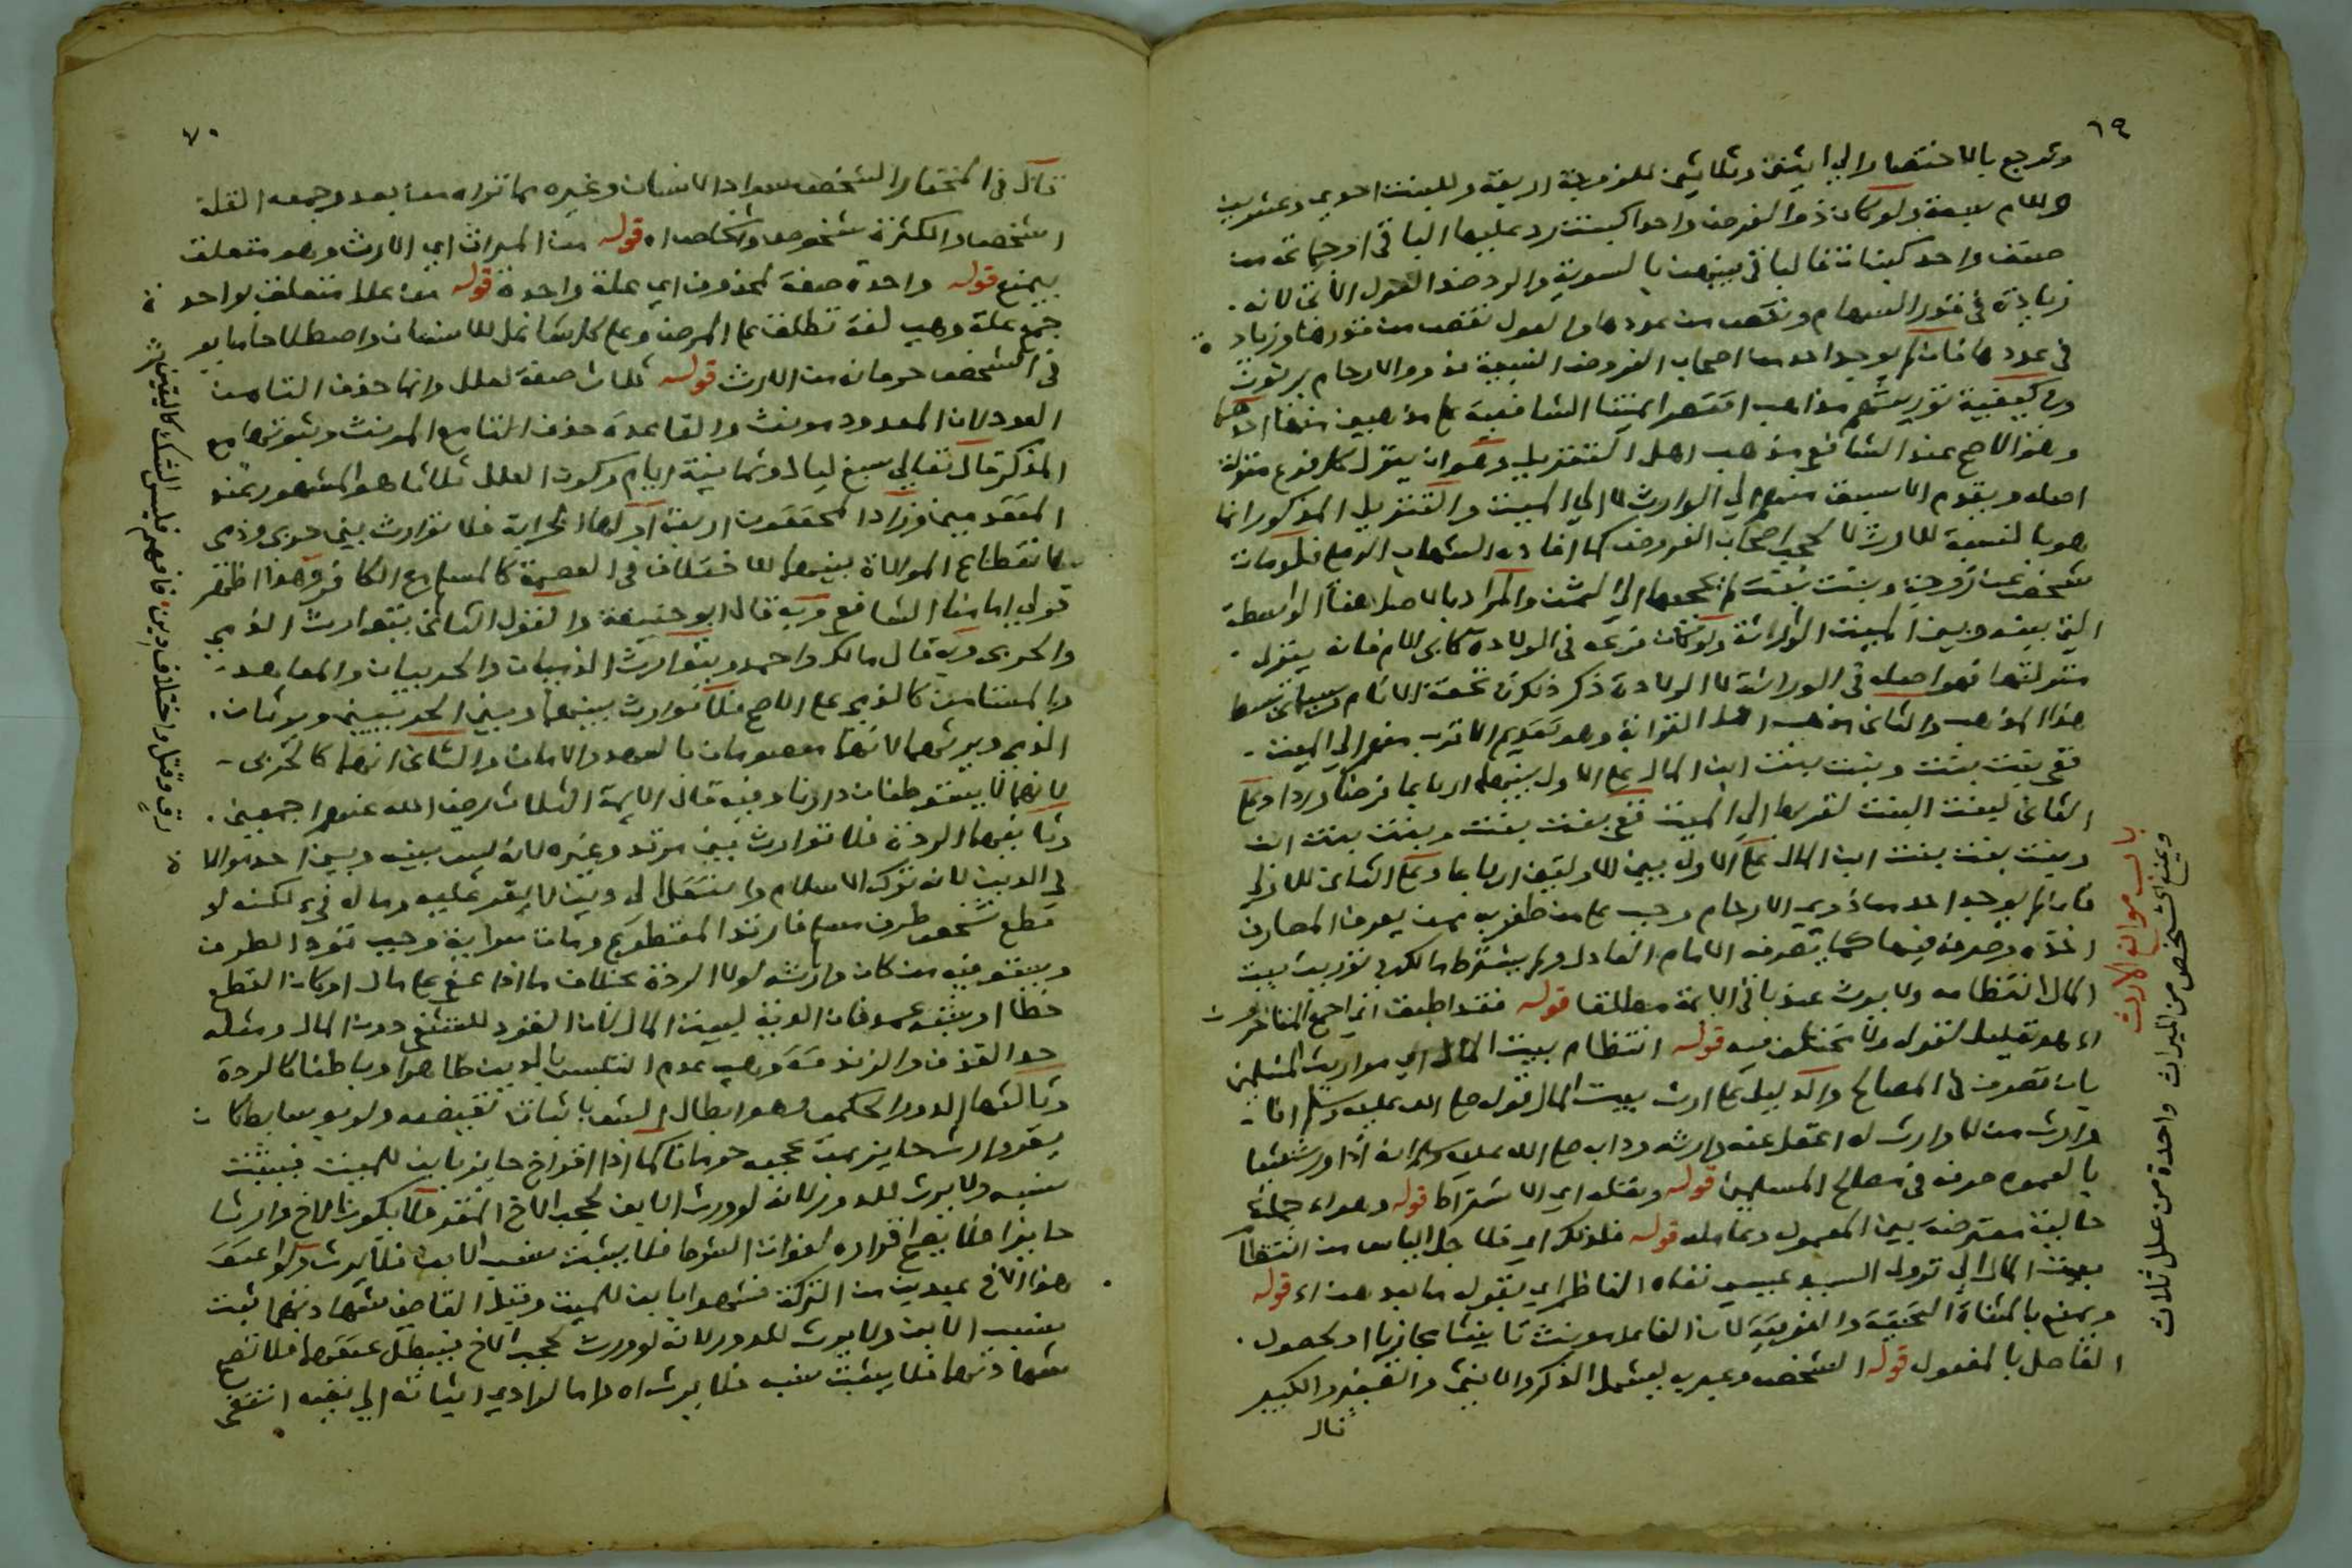 ٦٩
وترجع بالاختصار الى اثنين وثلاثين للزوجة اربعة وللبنت احدى وعشرين
وللام سبعة ولو كان ذو الفرض واحدا كبنت رد عليها الباقى او جماعة من
صنف واحد كبنات فالباقى بينهن بالسوية والرد ضد العول لانه
زيادة فى قدر السهام ونقص من عددها والعول نقص من قدرها وزيادة
فى عددها فان لم يوجد احد من اصحاب الفروض النسبية فذووا الارحام يرثون
وفى كيفية توريثهم مذاهب اقتصر ايمتنا الشافعية على مذهبين منها احدهما
وهو الاصح عند الشافعى مذهب اهل التنزيل وهو ان ينزل كل فرع منزلة
اصله ويقدم الاسبق منهم الى الوارث لا الى الميت والتنزيل المذكور انما
هو بالنسبة للارث لا لحجب اصحاب الفروض كما افاده الشهاب الرملى فلو مات
شخص عن زوجة وبنت بنت لم تحجبها الى الثمن والمراد بالاصل هنا الواسطة
التى بينه وبين الميت الوارثة ولو كانت فرعه فى الولادة كابى الام فانه ينزل
منزلتها فهو اصله فى الوراثة لا الولادة ذكر ذلك فى تحفة الانام
هذا المذهب والثانى مذهب اهل القرابة وهو تقديم الاقرب منهم الى الميت
ففى بنت بنت وبنت بنت ابن المال على الاول بينهما ارباعا فرضا وردا وعلى
الثانى لبنت البنت لقربها الى الميت ففى بنت بنت وبنت بنت ابن
وبنت بنت بنت ابن المال على الاول بين الاولتين ارباعا وعلى الثانى للاولى
فان لم يوجد احد من ذوى الارحام وجب على من ظفر به ممن يعرف المصارف
اخذه وصرفه فيها كما يصرفه الامام العادل ولم يشترط مالك فى توريث بيت
المال انتظامه ولا يورث عند باقى الايمة مطلقا قوله فقد اطبق اى اجمع المتاخرون
اه هو تعليل لقوله ولا تختلف فيه قوله انتظام بيت المال اى مواريث المسلمين
بان تصرف فى المصالح والدليل على ارث بيت المال قوله صلى الله عليه وسلم انا
وارث من لا وارث له اعقل عنه وارثه ودابه صلى الله عليه وسلم انه اذا ورث شيئا
بالعموم صرفه فى مصالح المسلمين قوله ونقله اى الاشتراط قوله وهو اه جملة
حالية معترضة بين المعمول وعامله قوله فلذلك اى فلاجل الياس من انتظام
بيت المال الى نزول السيد عيسى نفاه الناظر اى بقوله ما بعد هذا اه قوله
ويمنع بالمثناة التحتية والفوقية لان الفاعل مونث تانيثا مجازيا او لحصول
الفاصل بالمفعول قوله الشخص وعبر به ليشمل الذكر والانثى والصغير والكبير
قال
باب موانع الارث
ويمنع الشخص من الميراث واحدة من علل ثلاث
٧٠
قال فى المختار الشخص سواد الانسان وغيره مما تراه من بعد وجمعه القلة
اشخص والكثرة شخوص واشخاص اه قوله من الميراث اى الارث وهو متعلق
بيمنع قوله واحدة صفة لمحذوف اى علة واحدة قوله من علل متعلق بواحدة
جمع علة وهى لغة تطلق على المرض وعلى كل شاغل للانسان واصطلاحا ما يوجب
فى الشخص حرمانه من الارث قوله ثلاث صفة لعلل وانما حذف التا من
العدد لان المعدود مونث والقاعدة حذف التا مع المونث وثبوتها مع
المذكر قال تعالى سبع ليال وثمانية ايام وكون العلل ثلاثا هو المشهور عند
المتقدمين وزاد المحققون اربعة اولها الحرابة فلا توارث بين حربى وذمى
لانقطاع الموالاة بينهما للاختلاف فى العصمة كالمسلم مع الكافر وهذا اظهر
قولى امامنا الشافعى وبه قال ابو حنيفة والقول الثانى يتوارث الذمى
والحربى وبه قال مالك واحمد ويتوارث الذميان والحربيان والمعاهد
والمستامن كالذمى على الاصح فلا توارث بينهما وبين الحربيين ويرثان
الذمى ويرثهما لانهما معصومان بالعهد والامان والثانى انهما كالحربى
لانهما لا يتوطنان دارنا وفيه قال الايمة الثلاث رضى الله عنهم اجمعين
وثانيها الردة فلا توارث بين مرتد وغيره لانه ليس بينه وبين احد موالاة
فى الدين لانه ترك الاسلام وانتقل الى دين لا يقر عليه وماله فىء لكنه لو
قطع شخص طرف مسلم فارتد المقطوع ومات سراية وجب قود الطرف
ويستوفيه من كان وارثه لولا الردة بخلاف ما اذا عفى على مال او كان القطع
خطا او شبه عمد فان الدية لبيت المال لان القود للتشفى دون المال ومثله
حد القذف والزندقة وهى عدم التلبس بالدين ظاهرا وباطنا كالردة
وثالثها الدور الحكمى وهو ابطال الشىء باثبات نقيضه ولو بوسايط كان
يقر وارث حايز بمن يحجبه حرمانا كما اذا اقر اخ حايز بابن للميت فيثبت
نسبه ولا يرث للدور لانه لو ورث الابن لحجب الاخ المقر فلا يكون الاخ وارثا
حايزا فلا يصح اقراره لفوات الشرط فلا يثبت نسب الابن فلا يرث ولو اعتق
هذا الاخ عبدين من التركة فشهدا بابن للميت وقبل القاضى شهادتهما ثبت
نسب الابن ولا يورث للدور لانه لو ورث لحجب الاخ فيبطل عتقهما فلا تصح
شهادتهما فلا يثبت نسبه فلا يرث اه فما لو ادى اثباته الى نفيه انتفى
رق وقتل واختلاف دين فافهم فليس الشك كاليقين